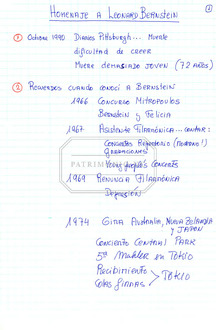 HOMENAJE A LEONARD BERNSTEIN
1
① Octubre 1990 Diarios Pittsburgh... Muerte
dificultad de creer
Muere demasiado joven (72 años)
② Recuerdos cuando conocí a Bernstein
1966 Concurso Mitropoulos
Bernstein y Felicia
1967 Asistente Filarmónica... contar:
Conciertos Repertorio (moderno!)
Grabaciones
Young People's Concerts
PATRIM
1969 Renuncia Filarmónica
Depresión
1974 Gira Australia, Nueva Zelandia
y Japón
Concierto Central Park
5ª Mahler en Tokio
Recibimiento
Colas firmas > Tokio